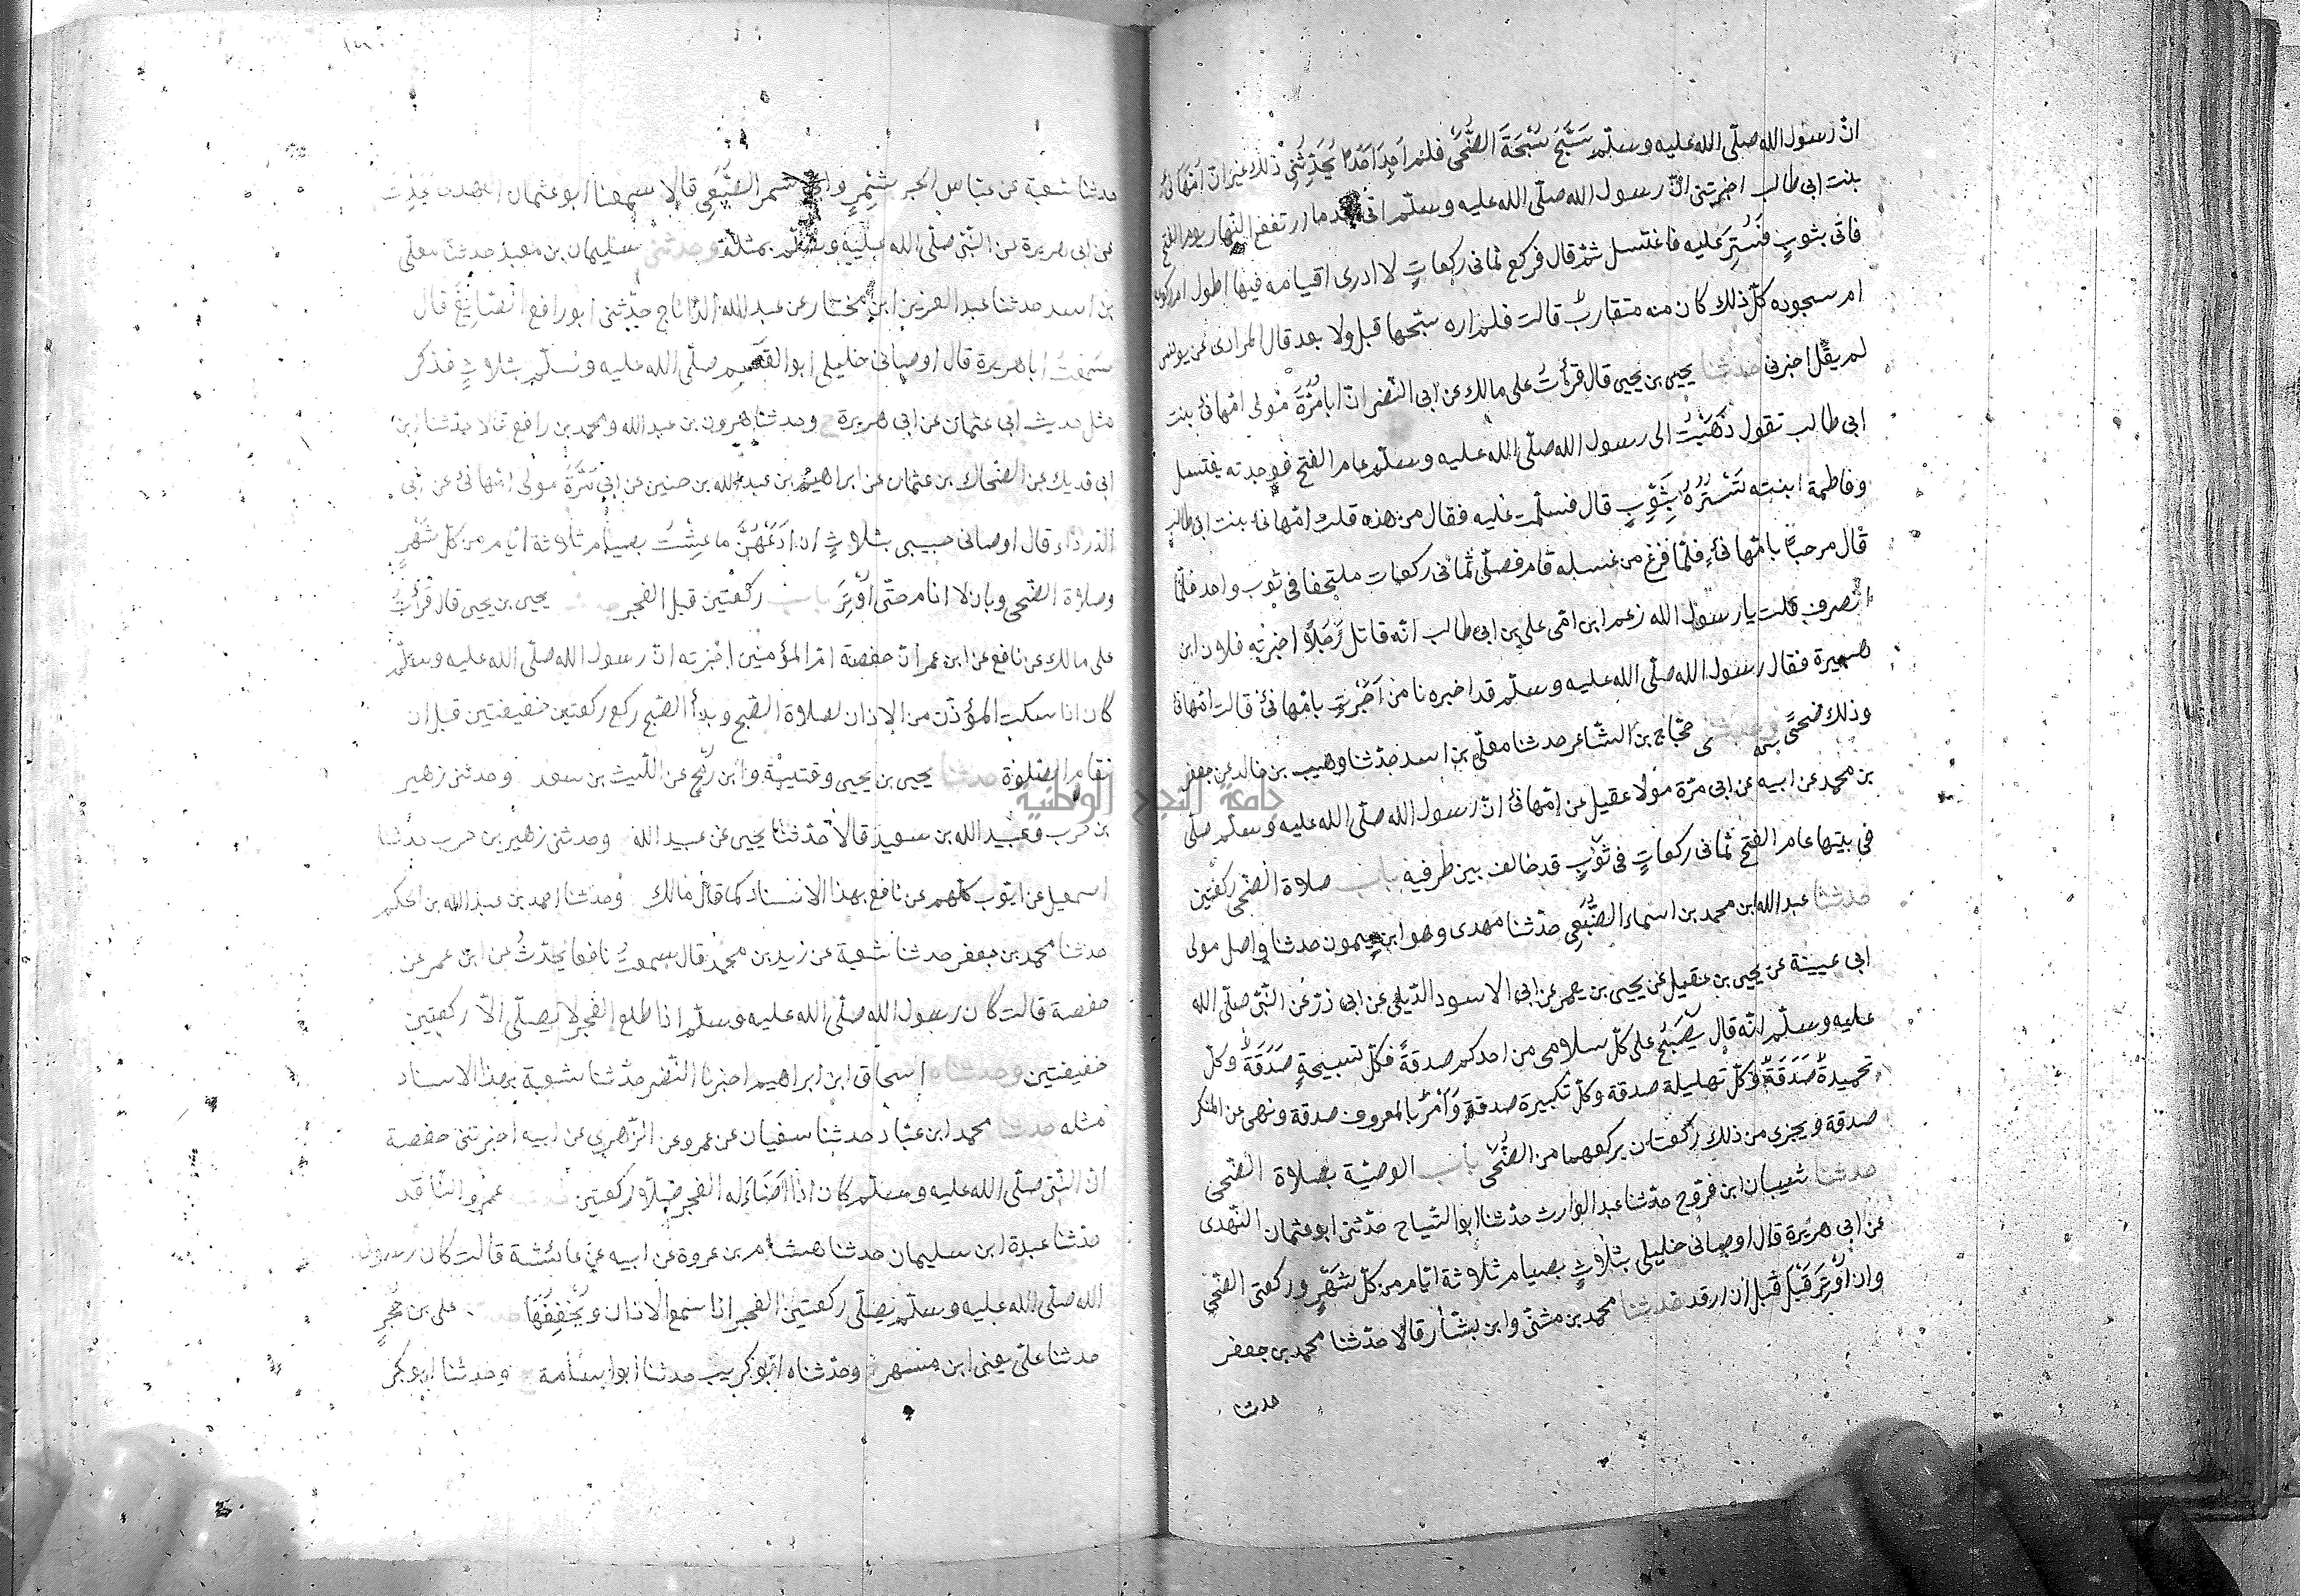 انّ رسول الله صلّى الله عليه وسلّم سَبَّحَ سُبْحَةَ الضُّحَى فلم اَجِدْ اَحَدًا يُحَدِّثُنِى ذلك غير انّ اُمّهانئ
بنت ابى طالب اخبرتنى انّ رسول الله صلّى الله عليه وسلّم اتى بعد ما ارتفع النهار يوم الفتح
فاتى بثوبٍ فَسُتِرَ عليه فاغتسل ثمّ قال فركع ثمانى ركعاتٍ لا ادرى اقيامه فيها اطول ام ركوعه
ام سجوده كلّ ذلك كان منه متقاربٌ قالت فلم اره سبّحها قبل ولا بعد قال المرادى عن يونس
لم يقل اخبرنى حدثنا يحيى بن يحيى قال قرأتُ على مالك عن ابى النّضر انّ ابا مُرَّةَ مولى امّهانئ بنت
ابى طالب تقول ذَهَبْتُ الى رسول الله صلّى الله عليه وسلّم عام الفتح فوجدته يغتسل
وفاطمة ابنته تَسْتُرُهُ بِثَوْبٍ قال فسلّمت عليه فقال من هذه قلت امّهانئ بنت ابى طالب
قال مرحبًا بامّهانئٍ فلمّا فرغ من غسله قام فصلّى ثمانى ركعات ملتحفا فى ثوب واحد فلمّا
انصرف قلت يا رسول الله زعم ابن امّى على بن ابى طالب انّه قاتل رَجُلًا اجرته فلان ابن
هبيرة فقال رسول الله صلّى الله عليه وسلّم قد اخبرنا من اَجَرْتِ يا امّهانئ قالت امّهانئ
وذلك ضحًى وحدثنى حجّاج بن الشاعر حدثنا معلّى بن اسد حدّثنا وهيب بن خالد عن جعفر
بن محمد عن ابيه عن ابى مرّة مولا عقيل عن امّهانئ انّ رسول الله صلّى الله عليه وسلّم صلّى
فى بيتها عام الفتح ثمانى ركعاتٍ فى ثوْبٍ قد خالف بين طرفيه باب صلاة الضّحى ركعتين
حدثنا عبد الله ابن محمد بن اسماء الضُّبَعِى حدّثنا مهدى وهو ابن ميمون حدثنا واصل مولى
ابى عيينة عن يحيى بن عقيل عن يحيى بن يعمر عن ابى الاسود الدّيلى عن ابى ذرّ عن النّبىّ صلّى الله
عليه وسلّم انّه قال يُصْبِحُ على كلّ سلامى من احدكم صدقةً فكلّ تسبيحةٍ صَدَقَةٌ وكلّ
تحميدةٌ صَدَقَةٌ وكلّ تهليلة صدقة وكلّ تكبيرة صدقة وَاَمْرٌ بالمعروف صدقة ونهى عن المنكر
صدقة ويجزى من ذلك ركعتان يركعهما من الضُّحَى باب الوصيّة بصلاة الضّحى
حدثنا شيبان ابن فرّوخ حدّثنا عبد الوارث حدّثنا ابو التّياح حدّثنى ابو عثمان النّهدى
عن ابى هريرة قال اوصانى خليلى بثلاثٍ بصيام ثلاثة ايّام من كلّ شَهْرٍ وركعتى الضّحى
وان اُوْتِرَ قَبْلَ قبل ان ارقد حدثنا محمد بن مثنى وابن بشّار قالا حدّثنا محمد بن جعفر
حدثنا
حدثنا شعبة عن عبّاس الجريرى وابى شمر الضُّبَعِى قالا سمعنا ابو عثمان النهدى يحدّث
عن ابى هريرة عن النّبىّ صلّى الله عليه وسلّم بمثله وحدثنى سليمان بن معبد حدثنا معلّى
بن اسد حدثنا عبد العزيز ابن مختار عن عبد الله الدّاناج حدّثنى ابو رافع الصّائغ قال
سَمِعْتُ ابا هريرة قال اوصانى خليلى ابو القسم صلّى الله عليه وسلّم بثلاثٍ فذكر
مثل حديث ابى عثمان عن ابى هريرة وحدثنا هرون بن عبد الله ومحمد بن رافع قالا حدّثنا ابن
ابى فديك عن الضّحاك بن عثمان عن ابراهيم بن عبد الله بن حنين عن ابى مُرَّةَ مولى امّهانئ عن ابى
الدّرداء قال اوصانى حبيبى بثلاثٍ ان اَدَعَهُنَّ ما عِشْتُ بصيام ثلاثة ايّام من كلّ شَهْرٍ
وصلاة الضّحى وبان لا انام حتّى اُوْتِرَ باب ركعتين قبل الفجر يحيى بن يحيى قال قرأتُ
على مالك عن نافع عن ابن عمر انّ حفصة امّ المؤمنين اخبرته انّ رسول الله صلّى الله عليه وسلّم
كان اذا سكت المؤذّن من الاذان لصلاة الصّبح وبدأ الصّبح ركع ركعتين خفيفتين قبل ان
تقام الصّلوة حدثنا يحيى بن يحيى وقتيبة وابن رُمْح عن اللّيث بن سعد وحدثنى زهير
بن حرب وعبيد الله بن سعيد قالا حدّثنا يحيى عن عبيد الله وحدثنى زهير بن حرب حدّثنا
اسمعيل عن ايّوب كلّهم عن نافع بهذا الاسناد كما قال مالك وحدثنا احمد بن عبد الله بن الحكم
حدثنا محمد بن جعفر حدثنا شعبة عن زيد بن محمد قال سمعتُ نافعا يحدّثُ عن ابن عمر عن
حفصة قالت كان رسول الله صلّى الله عليه وسلّم اذا طلع الفجر لا يصلّى الّا ركعتين
خفيفتين وحدثناه اسحاق ابن ابراهيم اخبرنا النّضر حدّثنا شعبة بهذا الاسناد
مثله حدثنا محمد ابن عبّاد حدثنا سفيان عن عمرو عن الزّهرى عن ابيه اخبرتنى حفصة
انّ النّبىّ صلّى الله عليه وسلّم كان اذا اَضَاءَ له الفجر صلّا ركعتين عمرو النّاقد
حدّثنا عبدة ابن سليمان حدثنا هشام بن عروة عن ابيه عن عائشة قالت كان رسول
الله صلّى الله عليه وسلّم يصلّى ركعتىِ الفجر اذا سمع الاذان ويُخَفِفُهَا على بن حُجْرٍ
حدثنا علىّ يعنى ابن مسهر وحدّثناه ابو كريب حدثنا ابو اسامة وحدثنا ابو بكر
جامعة النجاح الوطنية